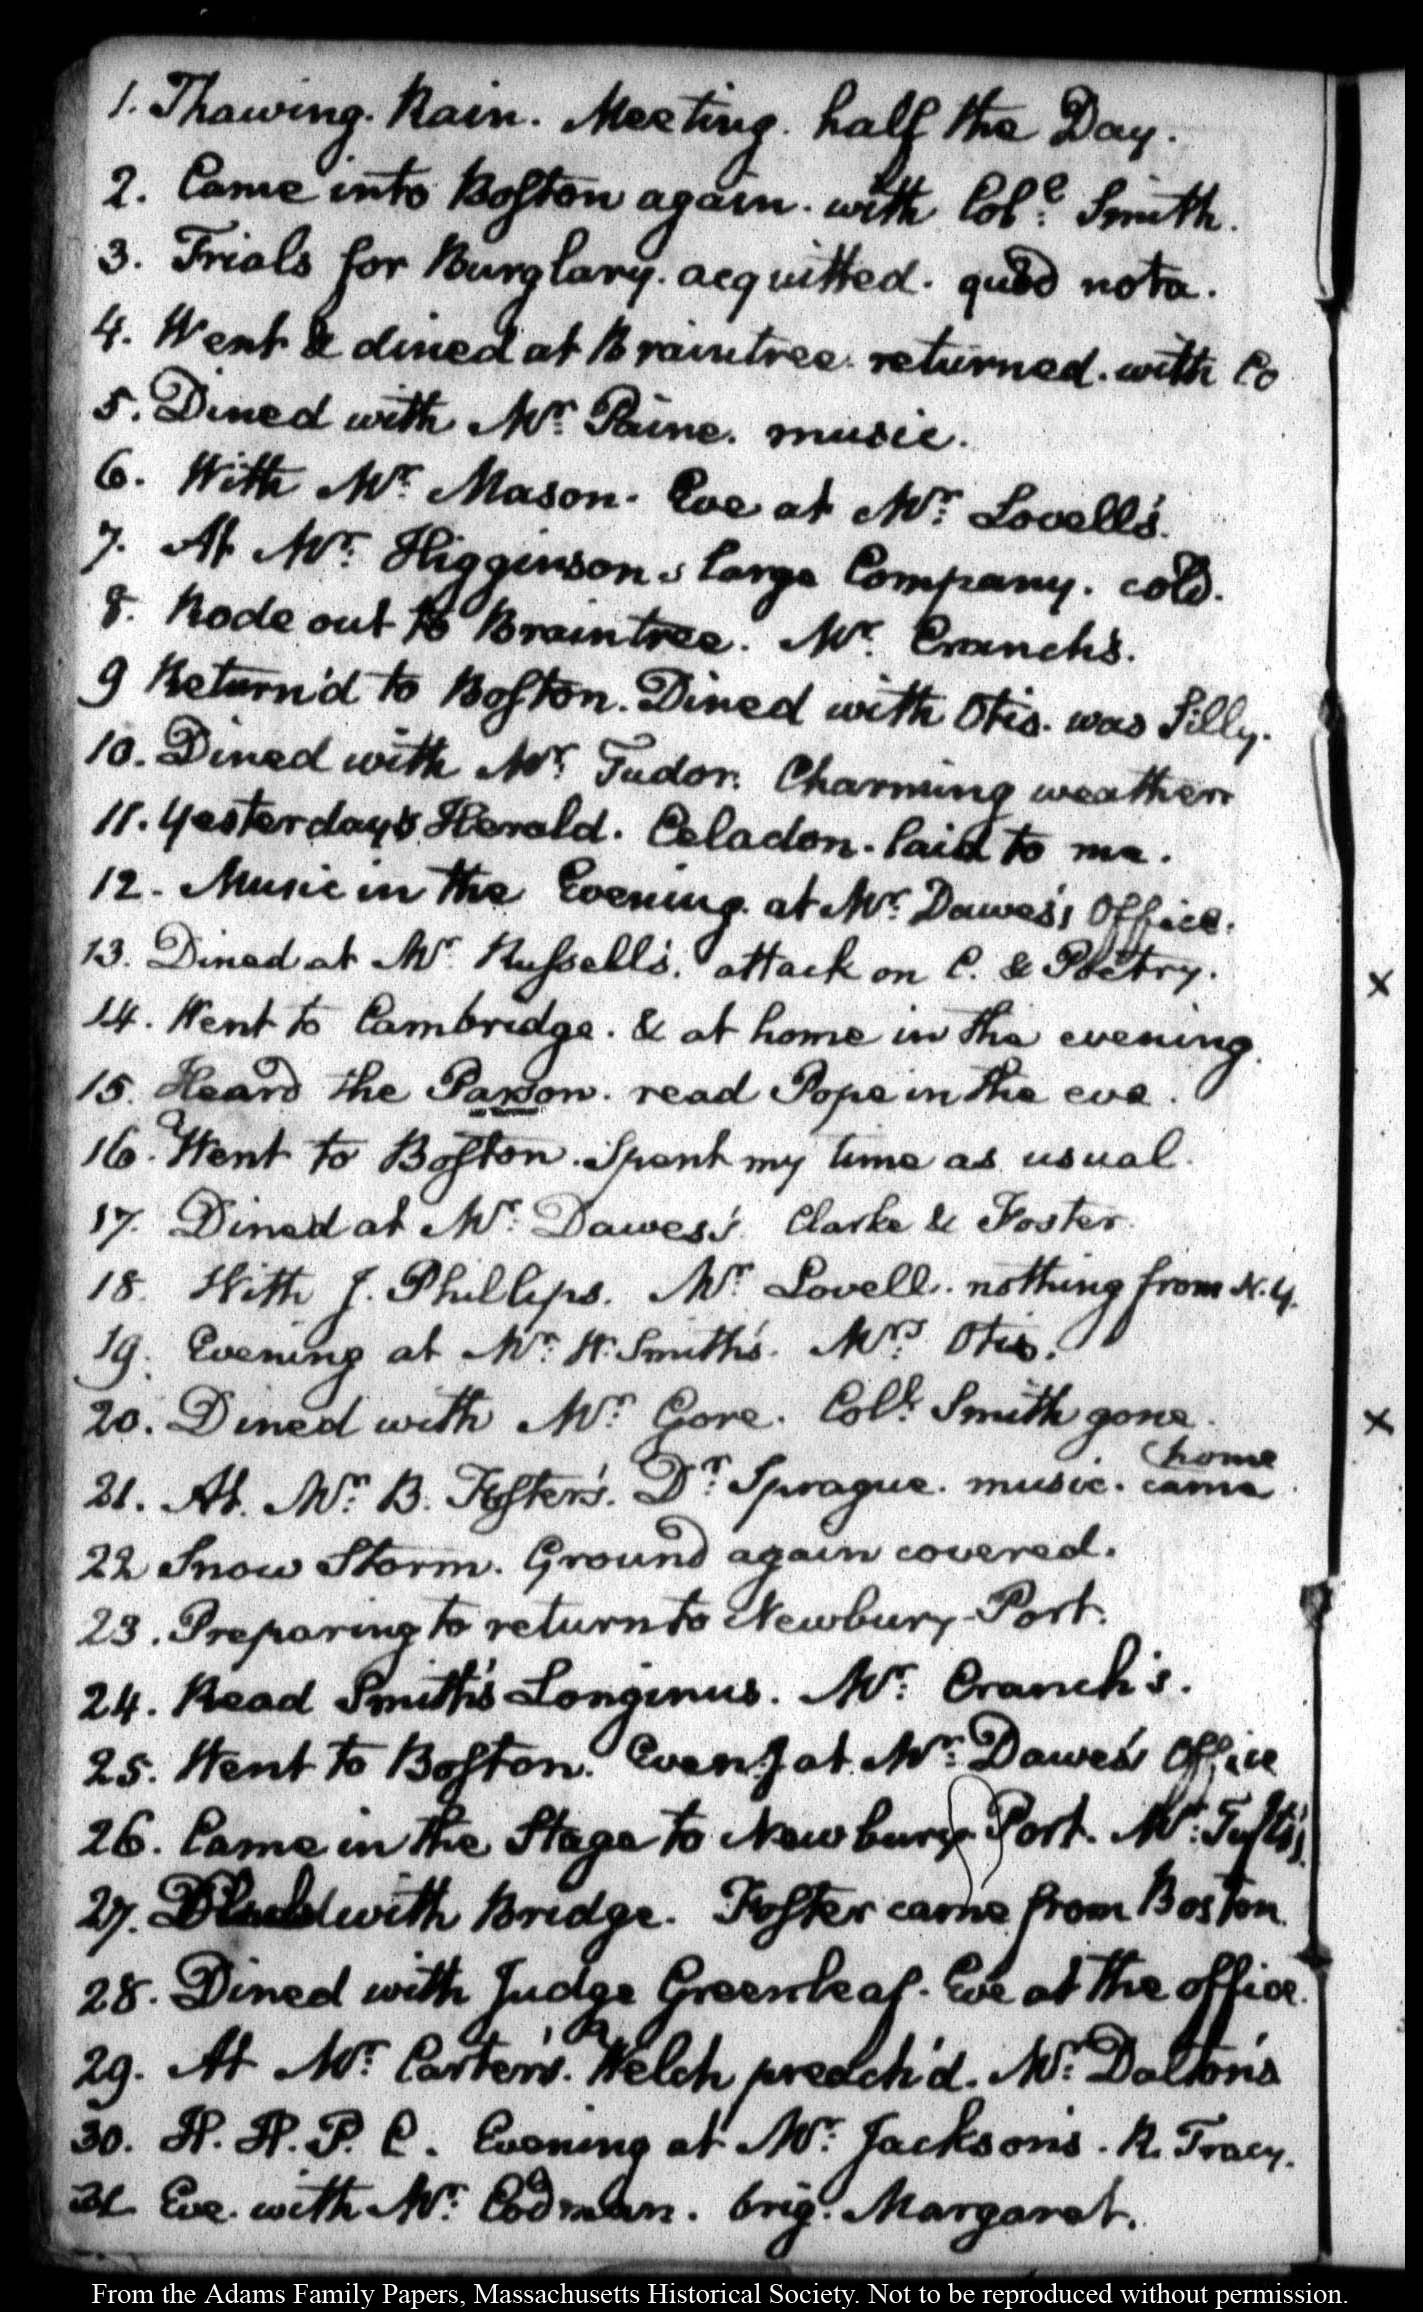 1. Thawing. Rain. Meeting. half the Day.
2. Came into Boston again. with Colo: Smith.
3. Trials for Burglary. acquitted. quod nota.
4. Went & dined at Braintree. returned. with Co
5. Dined with Mr: Paine. music.
6. With Mr: Mason. Eve at Mr: Lovell's.
7. At Mr: Higginson's large Company. cold.
8. Rode out to Braintree. Mr: Cranch's.
9 Return'd to Boston. Dined with Otis. was silly.
10. Dined with Mr: Tudor. Charming weather
11. Yesterday's Herald. Celadon. laid to me.
12. Music in the Evening. at Mr: Dawes's Office.
13. Dined at Mr: Russell's. attack on C. & Poetry.
14. Went to Cambridge. & at home in the evening.
15. Heard the Parson. read Pope in the eve.
16. Went to Boston. Spent my time as usual.
17. Dined at Mr: Dawes's. Clarke & Foster.
18. With J. Phillips. Mr: Lovell. nothing from N. Y.
19. Evening at Mr: W. Smith's. Mrs: Otis.
20. Dined with Mr: Gore. Coll: Smith gone.
21. At. Mr: B. Foster's. Dr: Sprague. music. came home
22 Snow Storm. Ground again covered.
23. Preparing to return to Newbury-Port.
24. Read Smith's Longinus. Mr: Cranch's.
25. Went to Boston. Even:g at Mr: Dawes's Office
26. Came in the Stage to Newbury-Port. Mr: Tufts's.
27. with Bridge. Foster came from Boston.
28. Dined with Judge Greenleaf. Eve at the office.
29. At Mr: Carter's. Welch preach'd. Mr: Dalton's
30. H. H. P. C. Evening at Mr: Jackson's. N. Tracy.
31 Eve. with Mr: Codman. brig. Margaret.
x
x
From the Adams Family Papers, Massachusetts Historical Society. Not to be reproduced without permission.